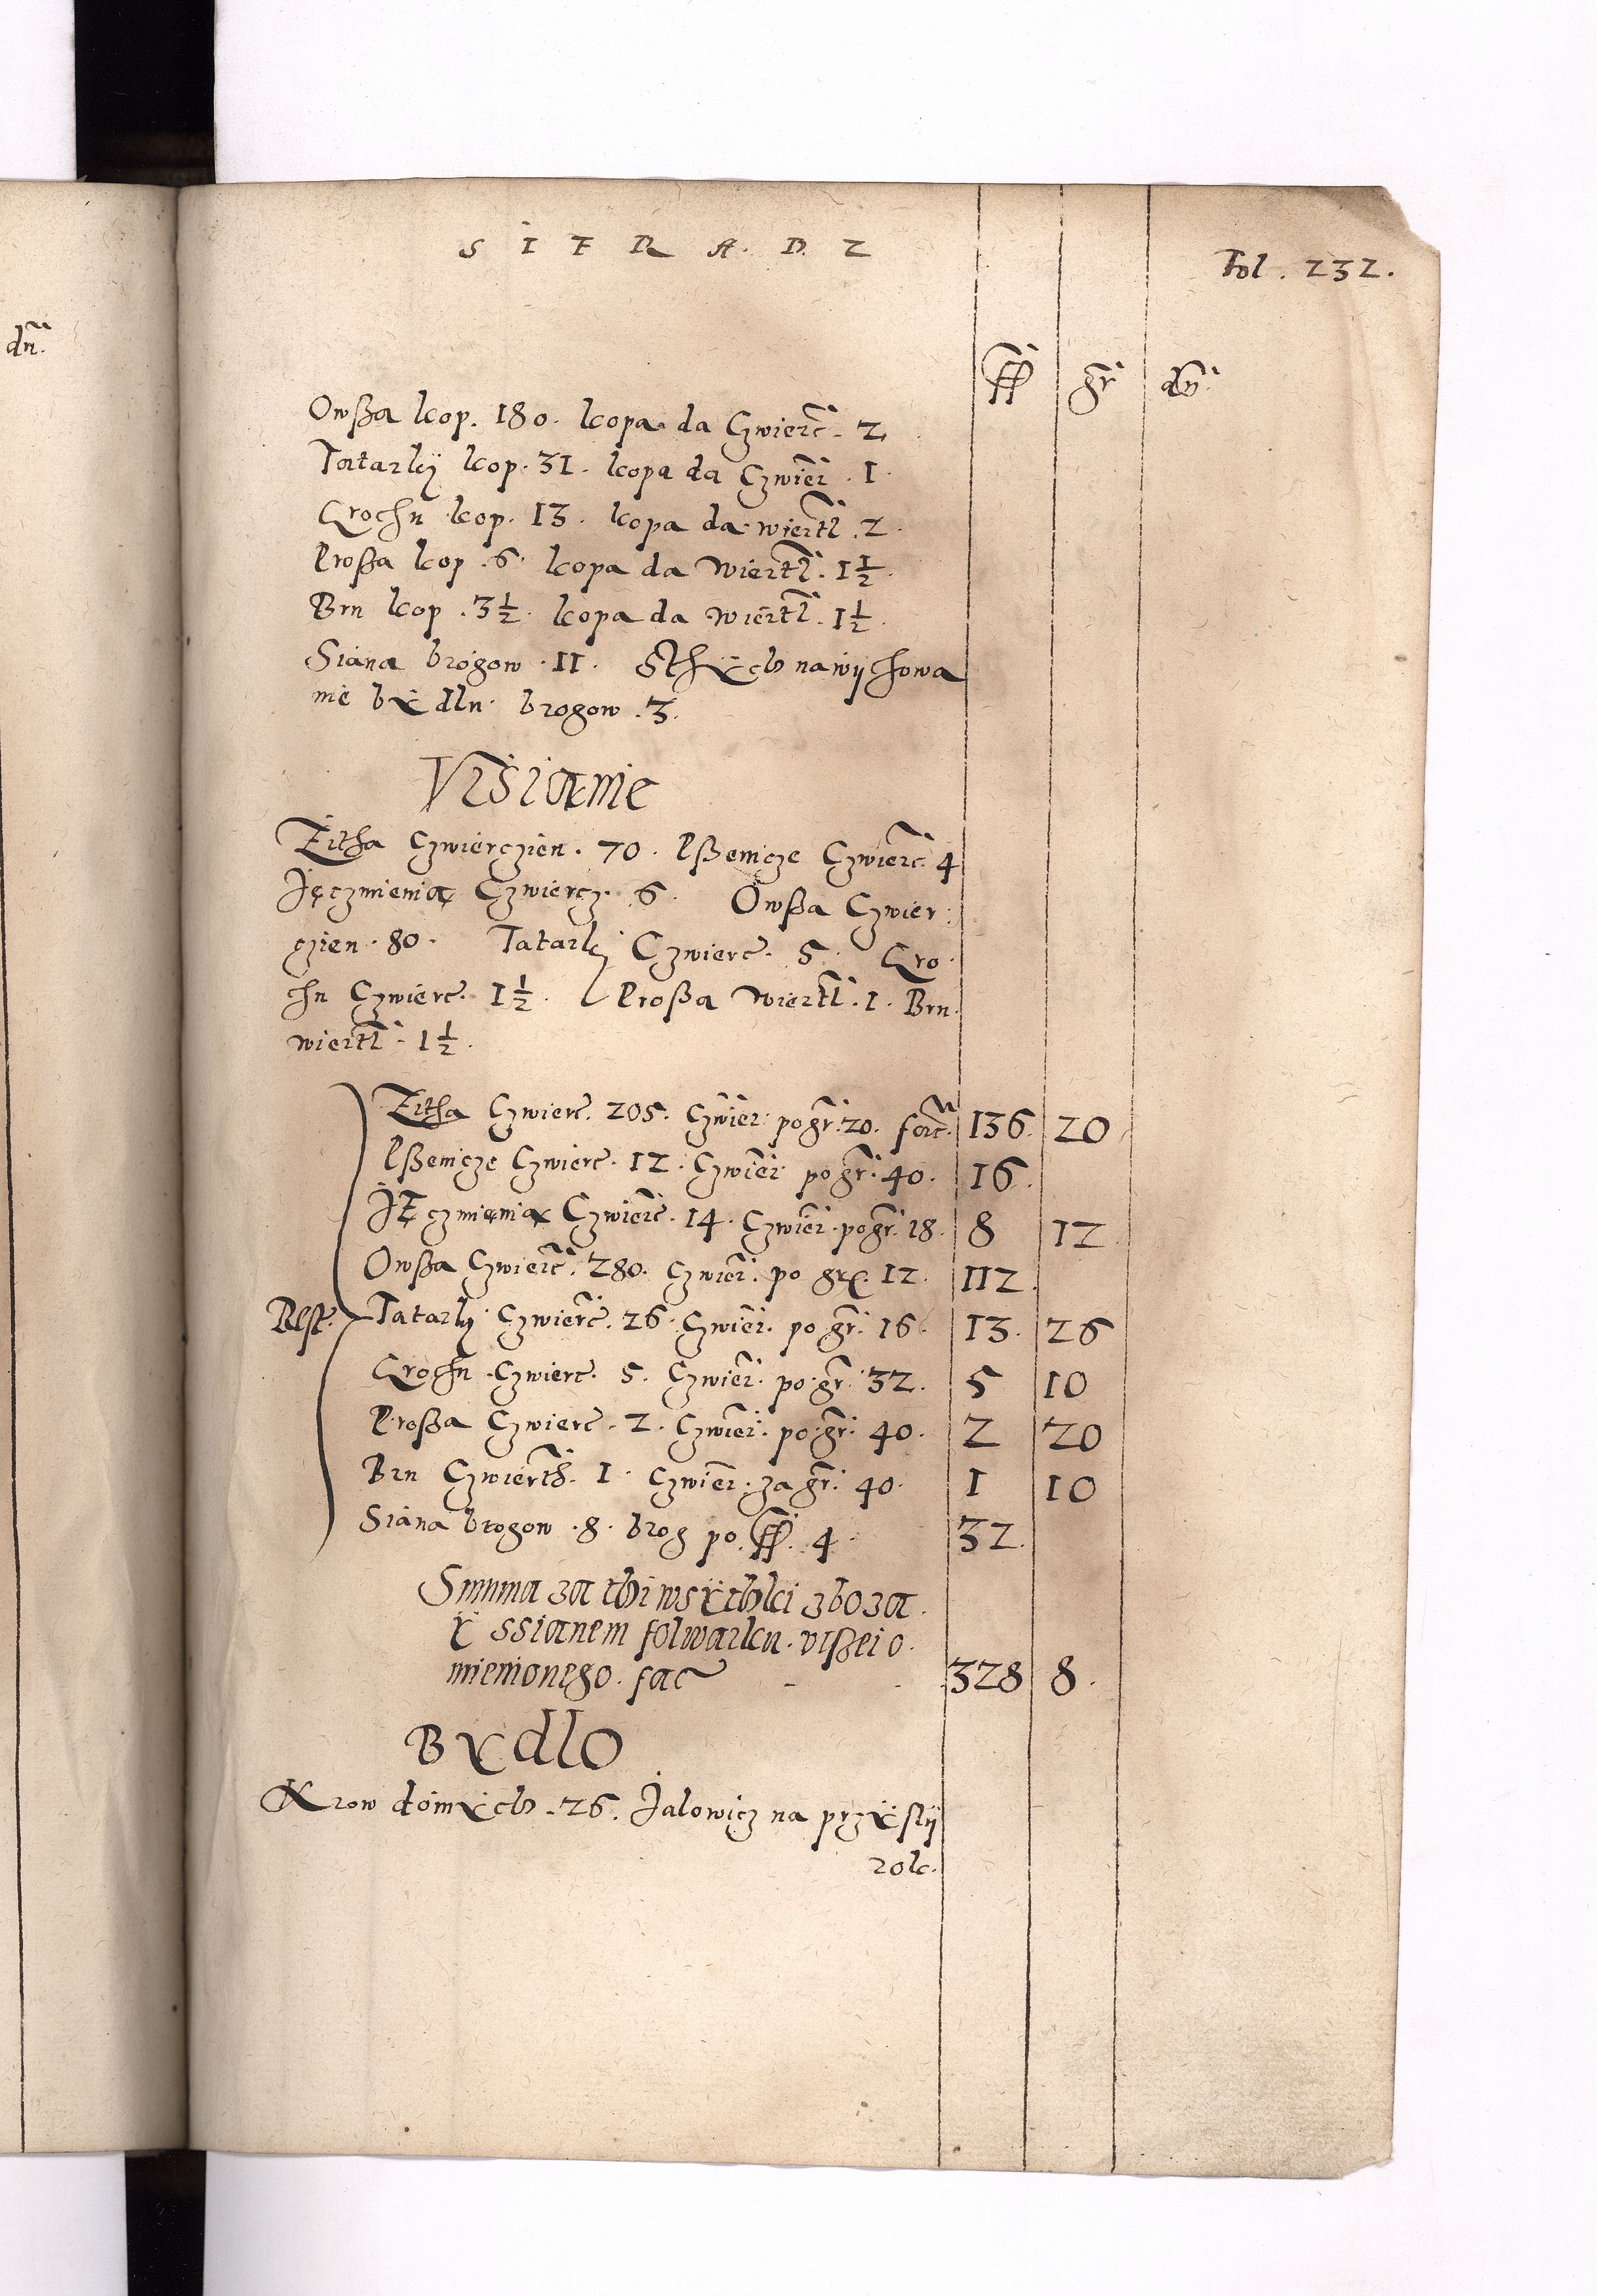 dn̄.
S I E R A D Z
Fol. 232.
ff gr dn
Owßa kop. 180. kopa da Czwierc. 2
Tatarky kop. 31. kopa da Czwier. 1
Grochu kop. 13. kopa da wiertl. 2.
Proßa kop. 6. kopa da Wiertl. 1½.
Bru kop. 3½. kopa da wiertl. 1½.
Siana brogow. 11. S Thÿch na wÿchowa
nie bÿdlu brogow. 3.
Vsianie
Zitha Czwierczien. 70. Pßenicze Czwierc. 4
Jęczmienią Czwiercz. 6. Owßa Czwier:
czien. 80. Tatarky Czwierc. 5. Gro
chu Czwierc. 1½. Proßa Wiertl. 1. Bru
wiertl. 1½.
Zitha Czwierc. 205. Czwier: po gr. 20. facit. 136. 20
Pßenicze Czwierc. 12. Czwier po gr. 40. 16.
JĘczmięnią Czwierc. 14. Czwier. po gr. 18. 8 12
Owßa Czwierc. 280. Czwier. po gr. 12. 112.
Rest. Tatarky Czwierc. 26. Czwier. po gr. 16. 13. 26
Grochu Czwierc. 5. Czwier. po gr. 32. 5 10
Proßa Czwierc. 2. Czwier. po gr. 40. 2 20
Bru Czwierth. 1. Czwier. za gr. 40. 1 10
Siana brogow. 8. brog po ff. 4. 32.
Summa za thi wsÿthki zboza
ÿ ssianem folwarku. vißei o
mienionego. fac 328 8.
BÿdlO
Krow doinÿch. 26. Jalowicz na przÿsly
rok.